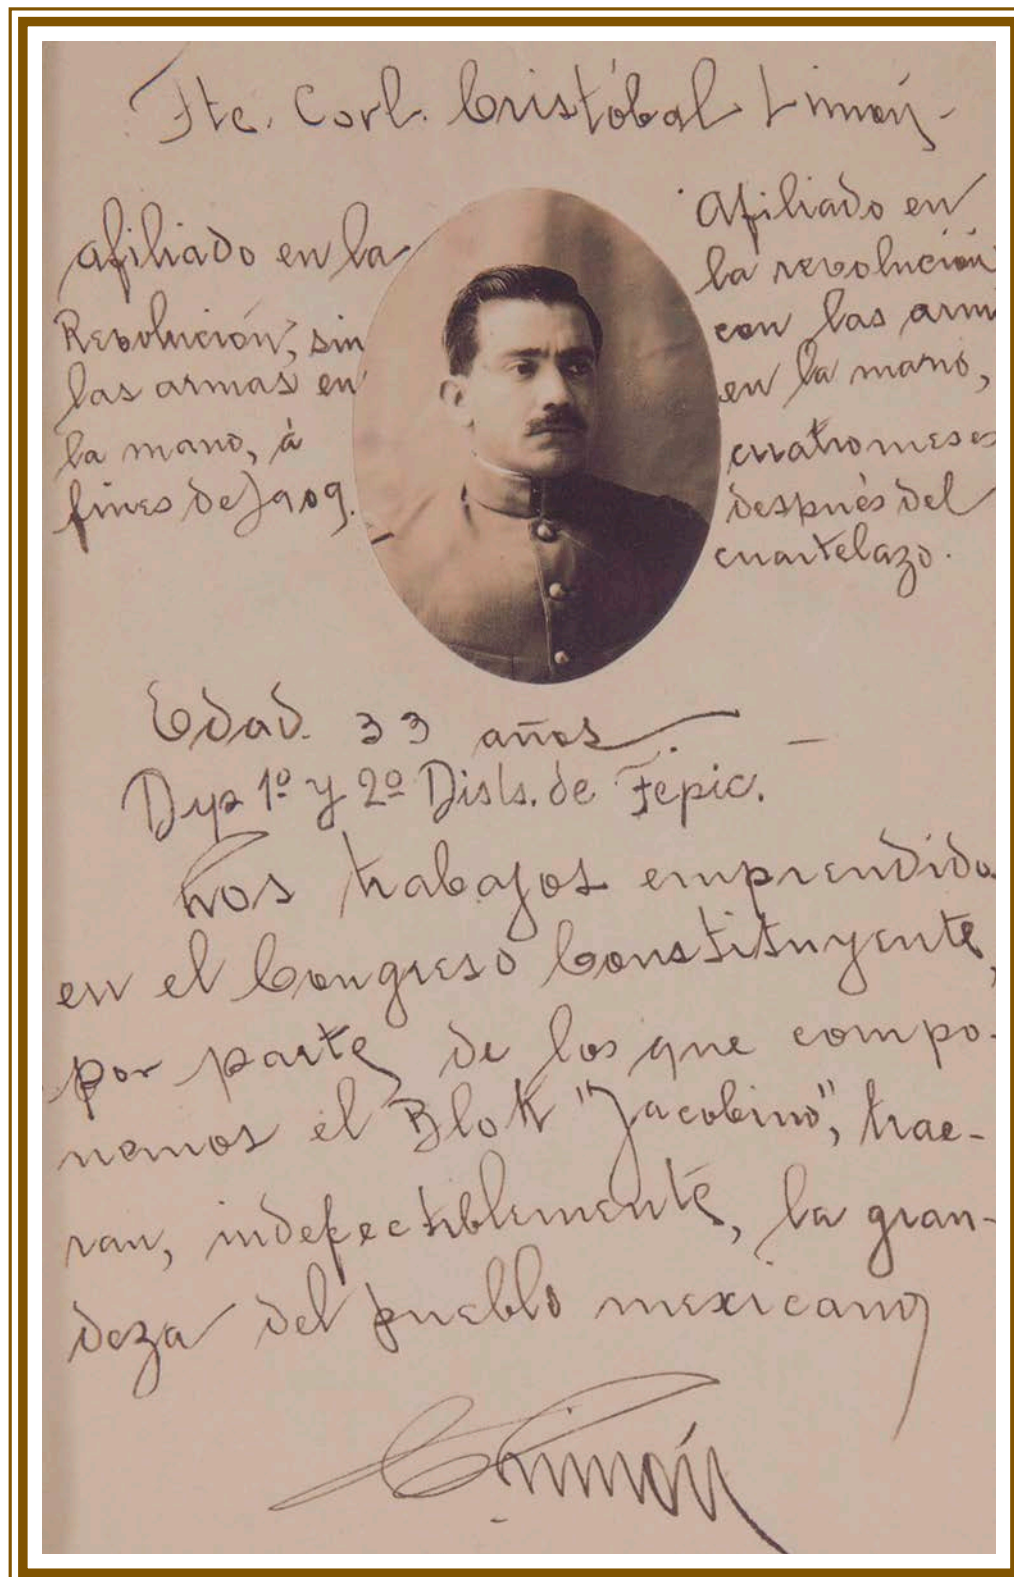 Tte. Corl. Cristóbal Limón-
afiliado en la
Revolución, sin
las armas en
la mano, á
fines de 1909.
Afiliado en
la revolución
con las arm
en la mano,
cuatro meses
después del
cuartelazo.
Edad. 33 años.
Dip 1º y 2º Dists. de Tepic.
Los trabajos emprendido
en el Congreso Constituyente,
por parte de los que compo-
nemos el Blok "Jacobino", trae-
ran, indefectiblemente, la gran-
deza del pueblo mexicano
CLimón